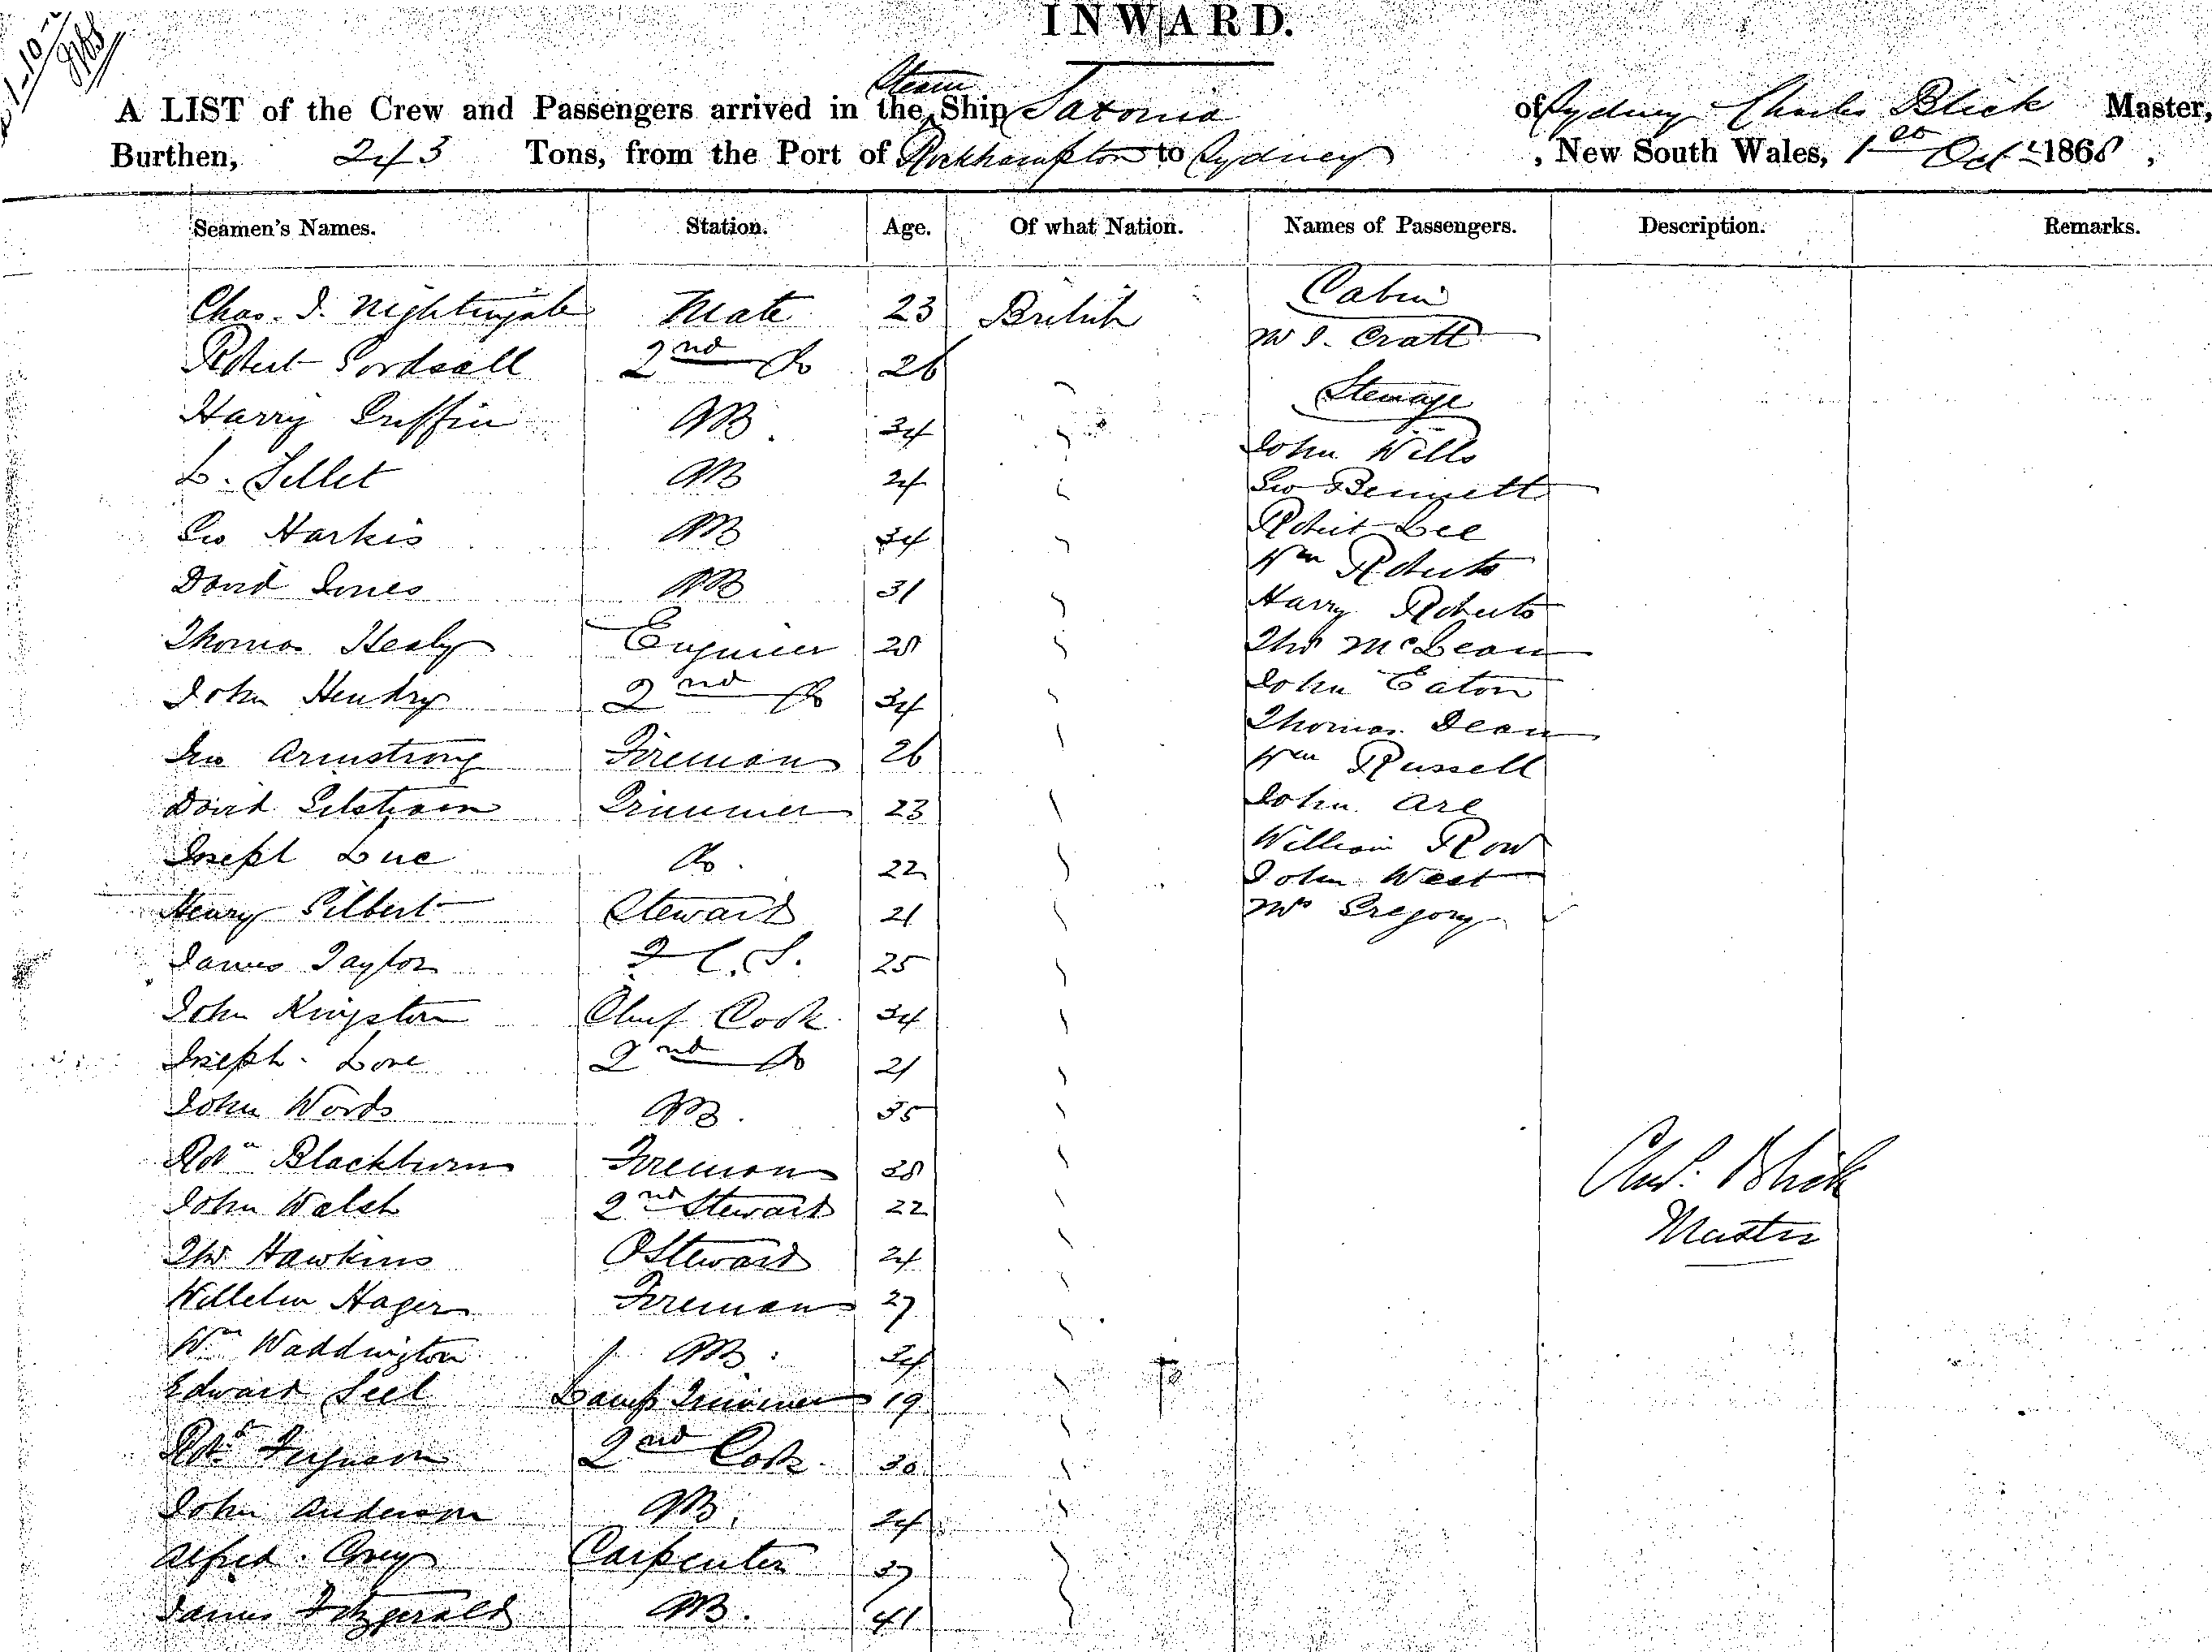 INWARD.
A LIST of the Crew and Passengers arrived in the Steam Ship Saxonia of Sydney Charles Blick Master,
Burthen, 243 Tons, from the Port of Rockhampton to Sydney, New South Wales, 1st Oct 1868,
Seamen's Names. Station. Age. Of what Nation. Names of Passengers. Description. Remarks.
Chas. J. Nightingale Mate 23 British
Robert 2nd Do 26
Harry Griffin AB. 34
L. AB 24
Geo Harkis AB 34
David Jones AB 31
Thomas Healy Engineer 28
John Hendry 2nd Do 34
Jno Armstrong Fireman 26
David Trimmer 23
Joseph Luc Do. 22
Henry Gilbert Steward 21
James Taylor 25
John Kingston Chief Cook 34
Joseph Love 2nd Do 21
John Words AB. 35
Blackburn Fireman 38
John Walsh 2nd Steward 22
Thos Hawkins Steward 24
Hager Fireman 27
Wm Waddington AB. 34
Edward Lamp Trimmer 19
Robt Ferguson 2nd Cook 30
John Anderson AB. 24
Alfred Carpenter 37
James Fitzgerald AB. 41
Cabin
Mr J. Cratt
Steerage
John Wills
Geo Bennett
Robert Lee
Wm Roberts
Harry Roberts
Thos McLean
John Eaton
Thomas Dean
Wm Russell
John Are
William Row
John West
Mrs Gregory
Chas. Blick
Master